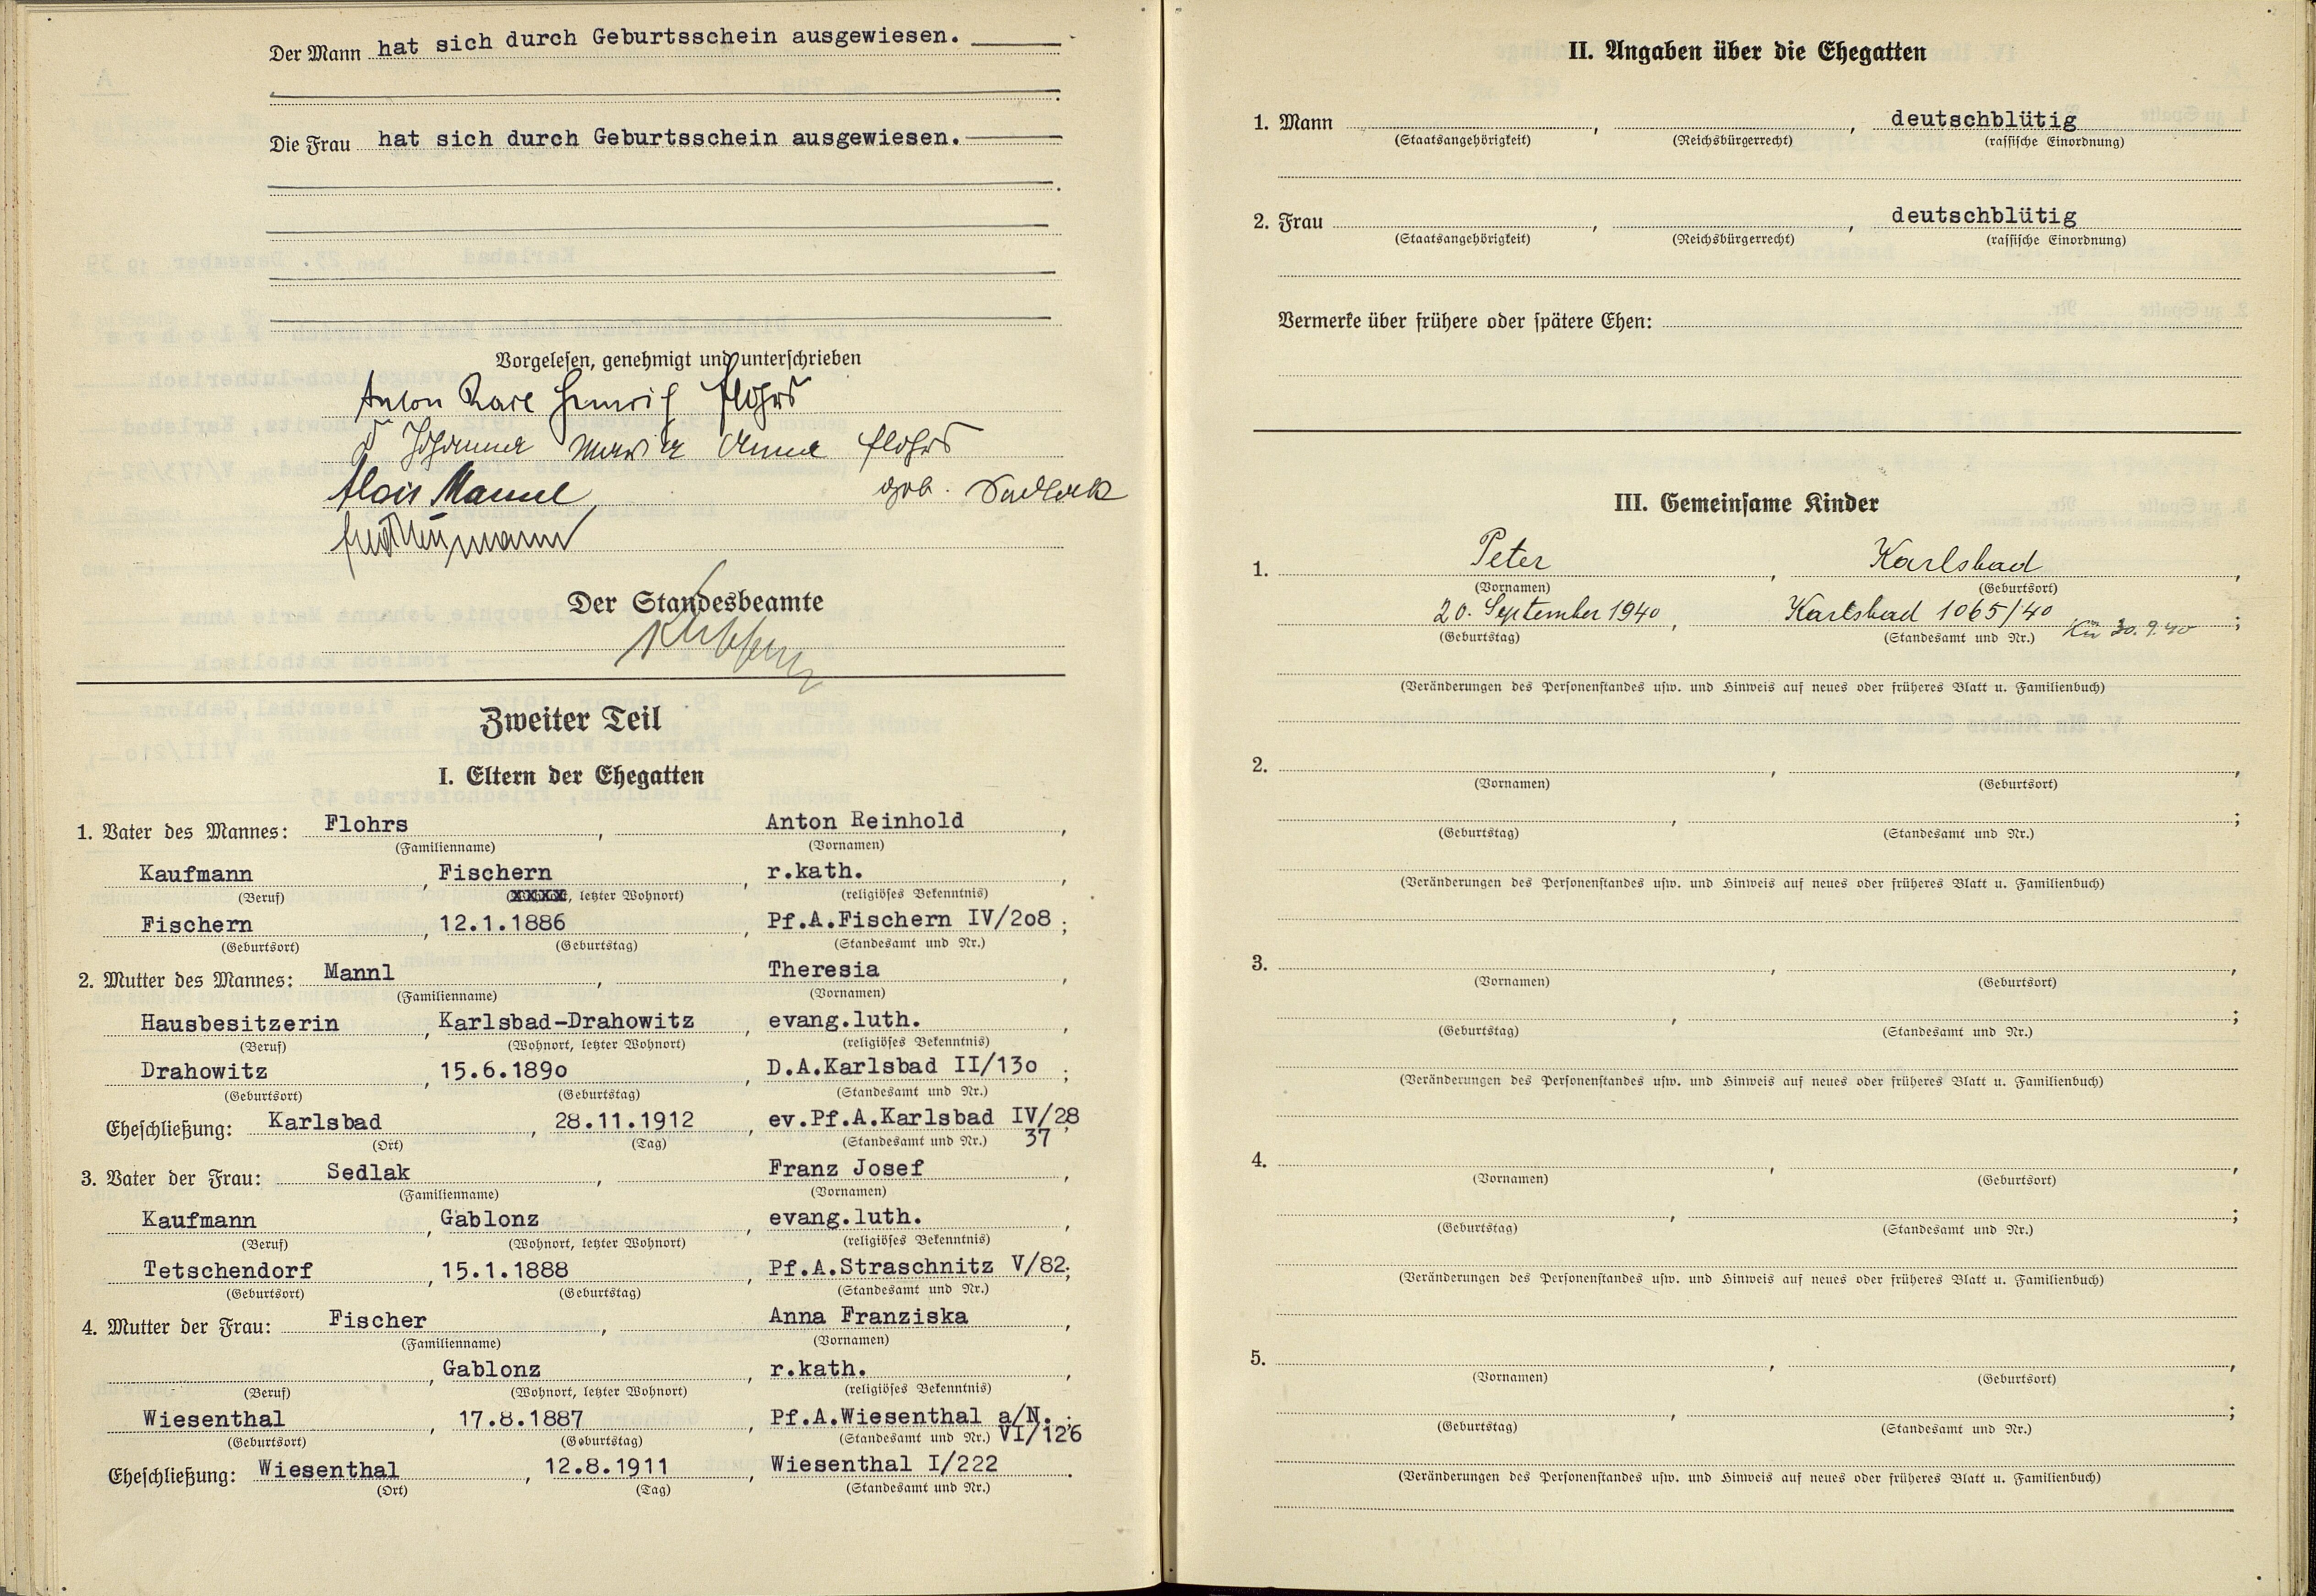 Der Mann hat sich durch Geburtsschein ausgewiesen.
Die Frau hat sich durch Geburtsschein ausgewiesen.
Vorgelesen, genehmigt und unterschrieben
Anton Karl Heinrich Flohrs
Johanna Maria Anna Flohrs
Alois Mannl geb. Sedlak
Der Standesbeamte
Zweiter Teil
I. Eltern der Ehegatten
1. Vater des Mannes: Flohrs, Anton Reinhold,
(Familienname) (Vornamen)
Kaufmann, Fischern, r.kath.,
(Beruf) (xxxx, letzter Wohnort) (religiöses Bekenntnis)
Fischern, 12.1.1886, Pf.A.Fischern IV/2o8;
(Geburtsort) (Geburtstag) (Standesamt und Nr.)
2. Mutter des Mannes: Mannl, Theresia,
(Familienname) (Vornamen)
Hausbesitzerin, Karlsbad-Drahowitz, evang.luth.,
(Beruf) (Wohnort, letzter Wohnort) (religiöses Bekenntnis)
Drahowitz, 15.6.189o, D.A.Karlsbad II/13o;
(Geburtsort) (Geburtstag) (Standesamt und Nr.)
Eheschließung: Karlsbad, 28.11.1912, ev.Pf.A.Karlsbad IV/28
(Ort) (Tag) (Standesamt und Nr.) 37
3. Vater der Frau: Sedlak, Franz Josef,
(Familienname) (Vornamen)
Kaufmann, Gablonz, evang.luth.,
(Beruf) (Wohnort, letzter Wohnort) (religiöses Bekenntnis)
Tetschendorf, 15.1.1888, Pf.A.Straschnitz V/82;
(Geburtsort) (Geburtstag) (Standesamt und Nr.)
4. Mutter der Frau: Fischer, Anna Franziska,
(Familienname) (Vornamen)
, Gablonz, r.kath.,
(Beruf) (Wohnort, letzter Wohnort) (religiöses Bekenntnis)
Wiesenthal, 17.8.1887, Pf.A.Wiesenthal a/N.;
(Geburtsort) (Geburtstag) (Standesamt und Nr.) VI/126
Eheschließung: Wiesenthal, 12.8.1911, Wiesenthal I/222.
(Ort) (Tag) (Standesamt und Nr.)
II. Angaben über die Ehegatten
1. Mann , , deutschblütig
(Staatsangehörigkeit) (Reichsbürgerrecht) (rassische Einordnung)
2. Frau , , deutschblütig
(Staatsangehörigkeit) (Reichsbürgerrecht) (rassische Einordnung)
Vermerke über frühere oder spätere Ehen:
III. Gemeinsame Kinder
1. Peter, Karlsbad,
(Vornamen) (Geburtsort)
20. September 1940, Karlsbad 1065/40 Kü 30.9.40;
(Geburtstag) (Standesamt und Nr.)
(Veränderungen des Personenstandes usw. und Hinweis auf neues oder früheres Blatt u. Familienbuch)
2. , ,
(Vornamen) (Geburtsort)
, ;
(Geburtstag) (Standesamt und Nr.)
(Veränderungen des Personenstandes usw. und Hinweis auf neues oder früheres Blatt u. Familienbuch)
3. , ,
(Vornamen) (Geburtsort)
, ;
(Geburtstag) (Standesamt und Nr.)
(Veränderungen des Personenstandes usw. und Hinweis auf neues oder früheres Blatt u. Familienbuch)
4. , ,
(Vornamen) (Geburtsort)
, ;
(Geburtstag) (Standesamt und Nr.)
(Veränderungen des Personenstandes usw. und Hinweis auf neues oder früheres Blatt u. Familienbuch)
5. , ,
(Vornamen) (Geburtsort)
, ;
(Geburtstag) (Standesamt und Nr.)
(Veränderungen des Personenstandes usw. und Hinweis auf neues oder früheres Blatt u. Familienbuch)